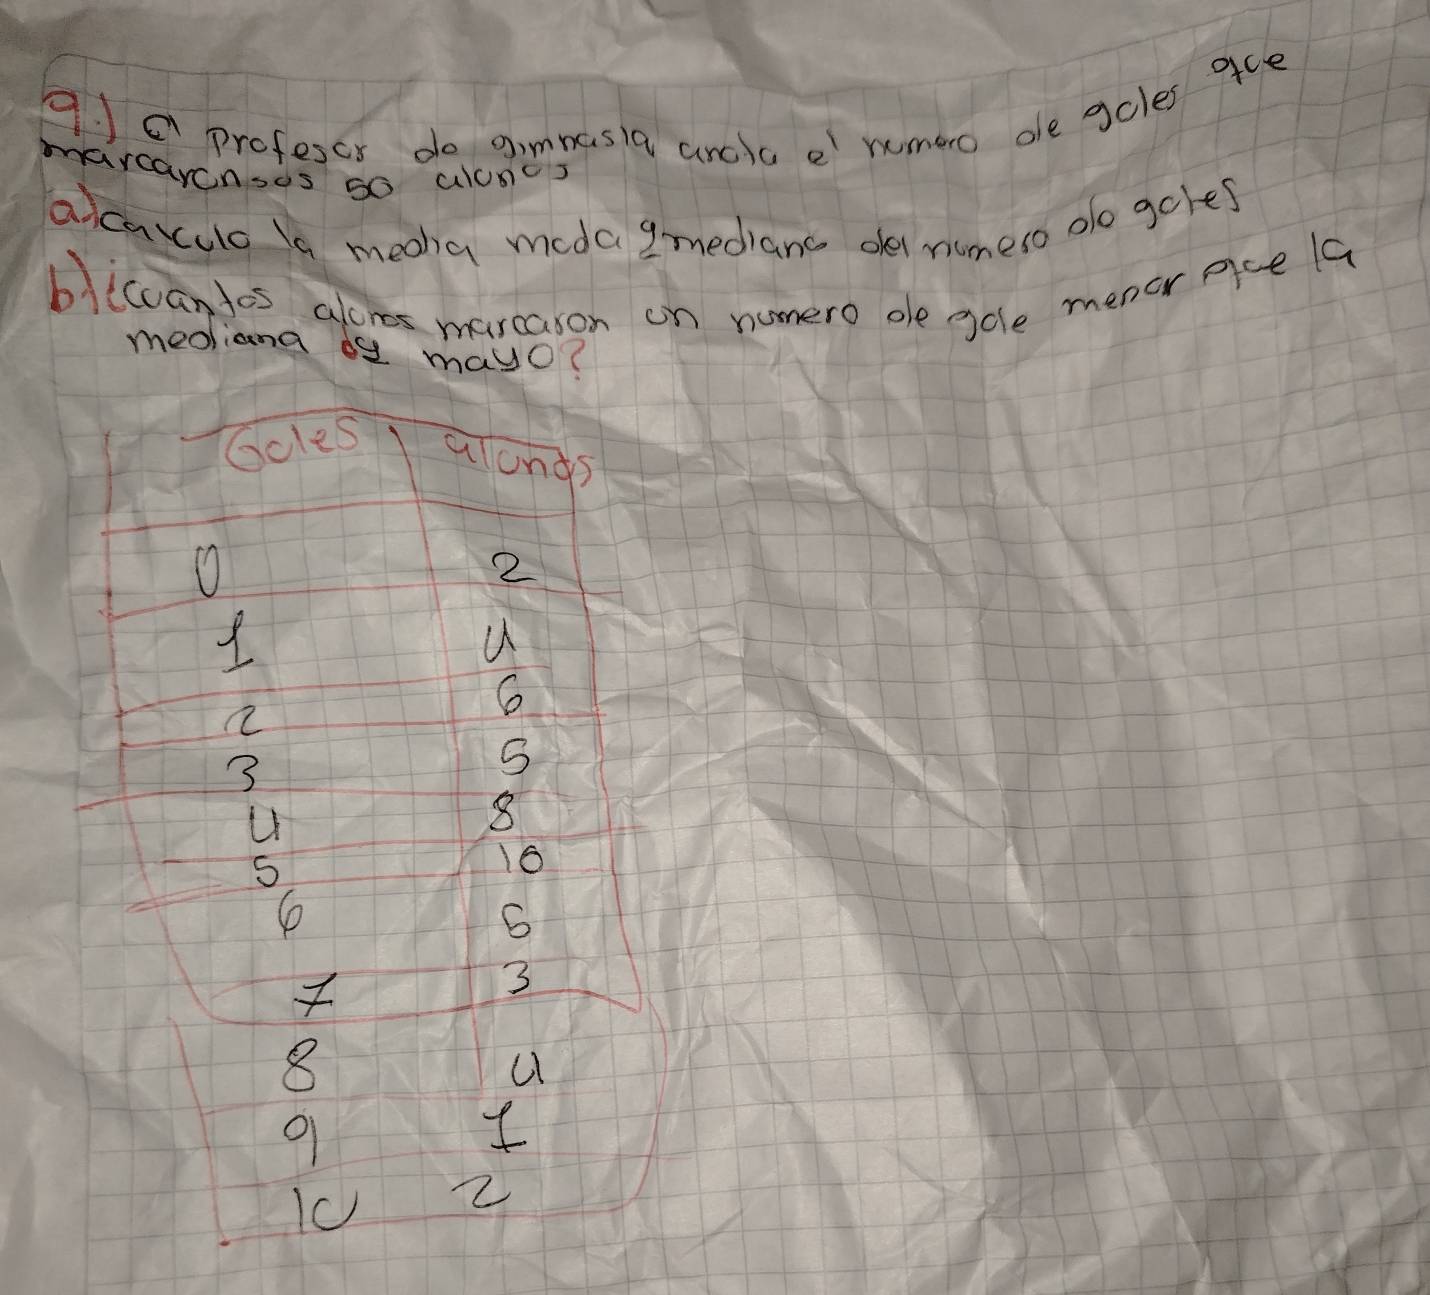 9.) el profesor de gimnasia anota el numero de goles que
marcaron sus 50 alunos
a) calculo la media moda y mediana del numero de goles
b) ¿cuantos alunos marcaron un numero de gole menor que la
mediana y mayo?
Goles alunos
0 2
1 4
2 6
3 5
4 8
5 10
6 5
7 3
8 4
9 1
10 2